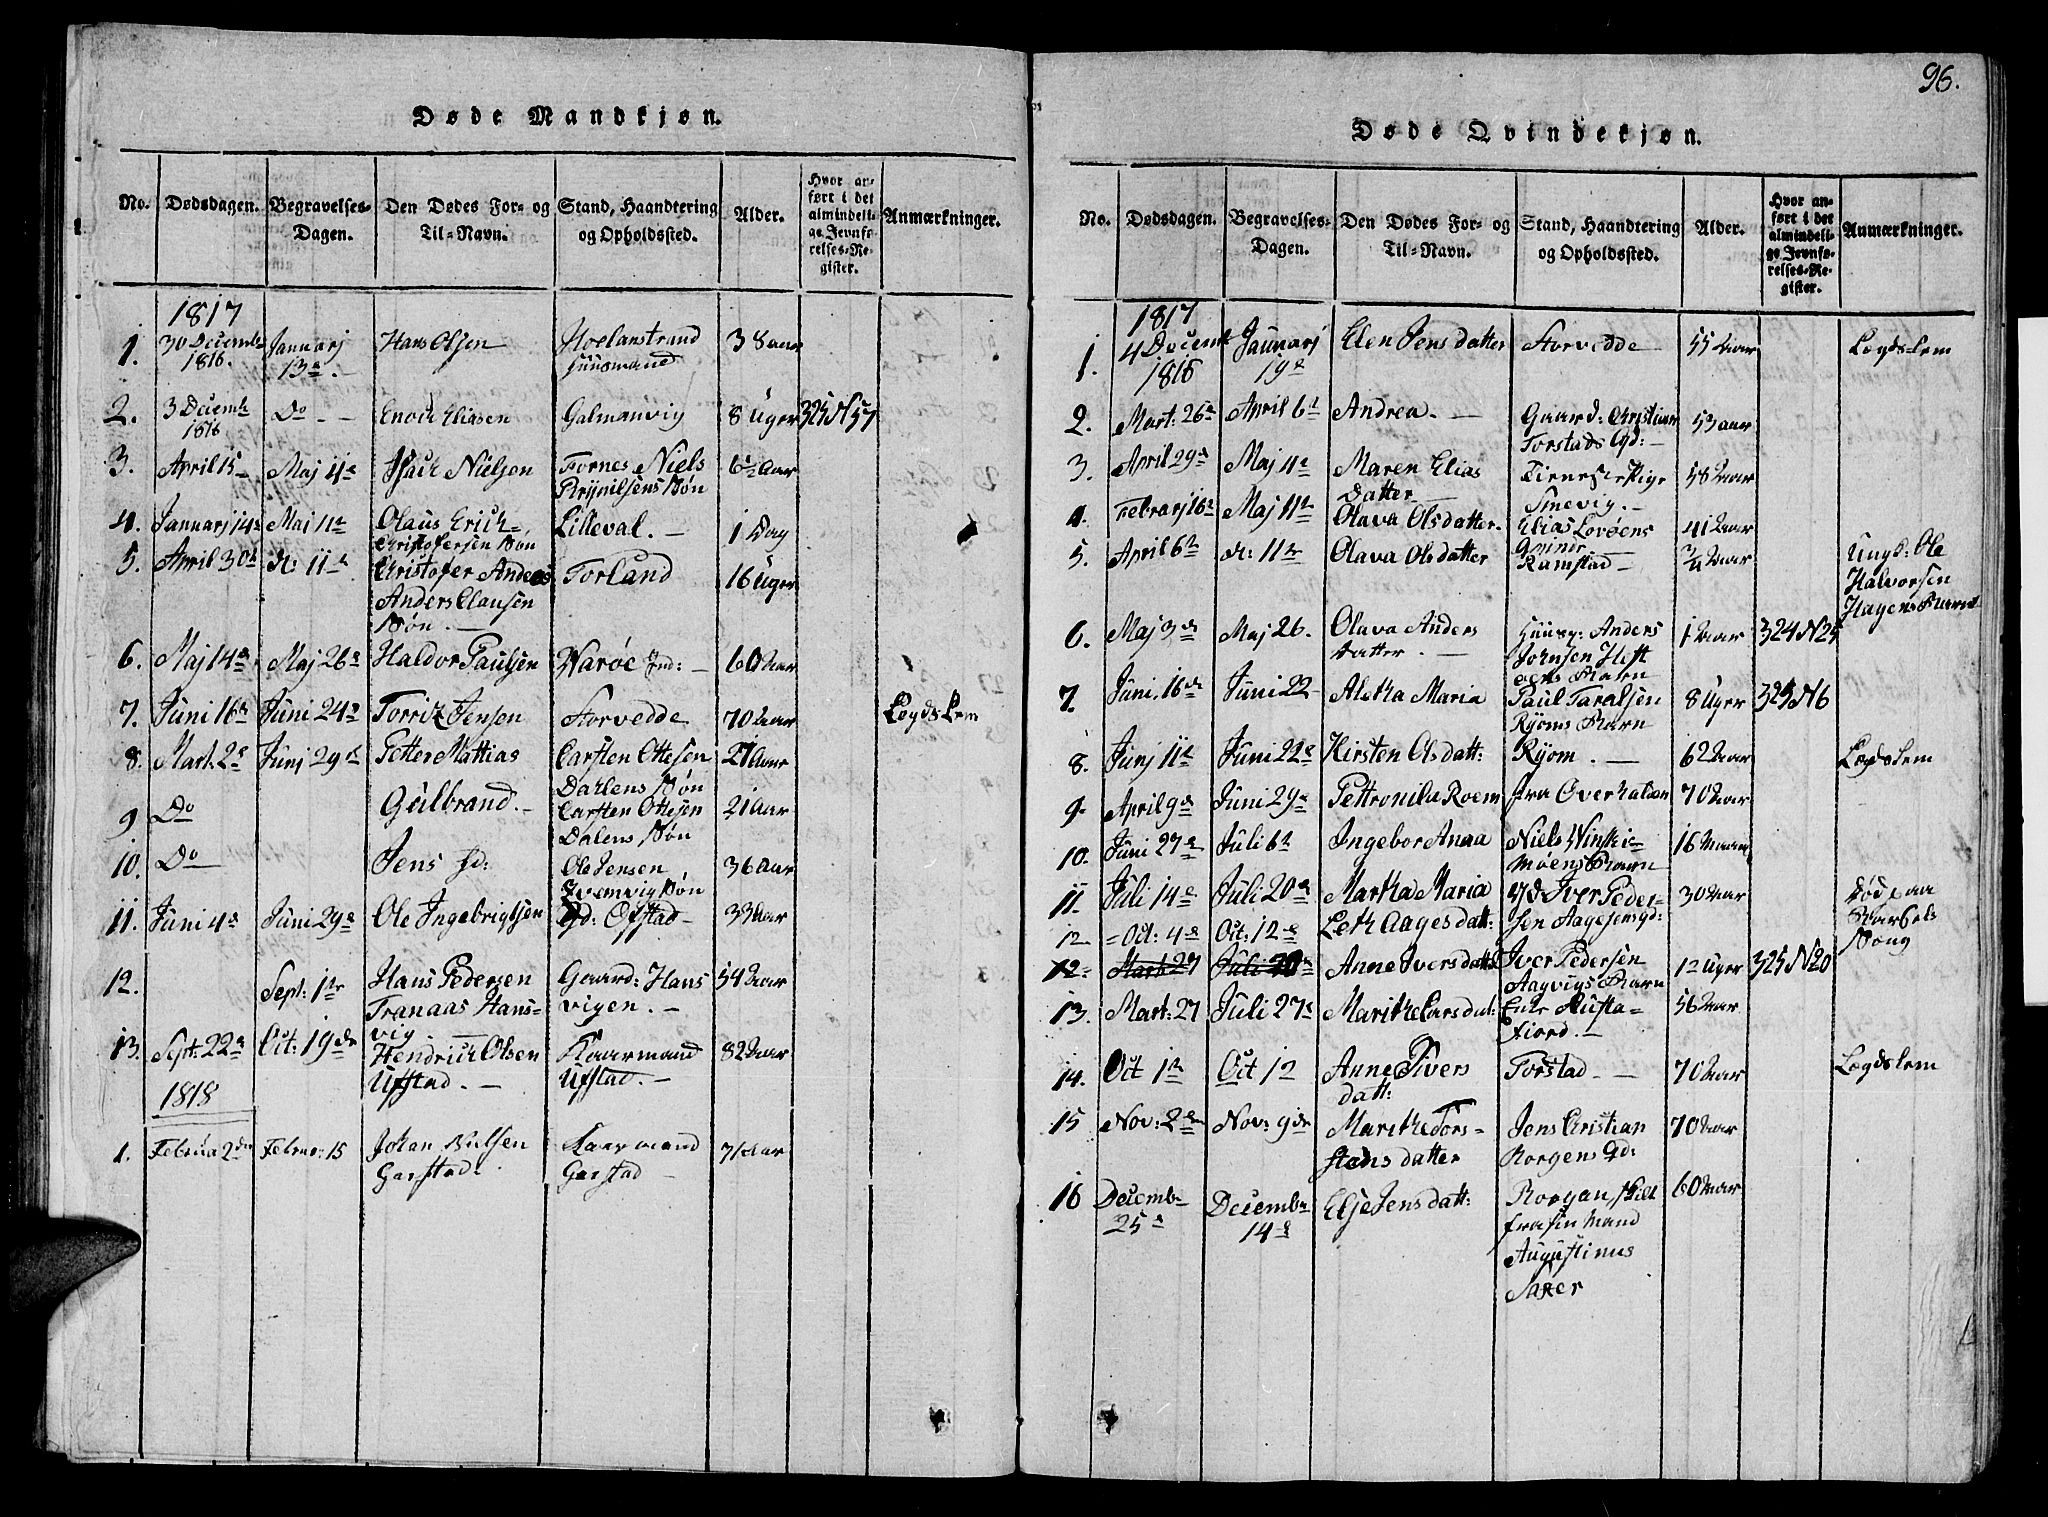 96.
Døde Mandkjøn.
No. Dødsdagen. Begravelses-Dagen. Den Dødes For- og Til-Navn. Stand, Haandtering og Opholdssted. Alder. Hvor anført i det almindelige Jevnførelses-Register. Anmærkninger.
1817
1. 30 Decemb 1816. Januarj 13e Hans Olsen Hoelanstrand Huusmand 38 aar
2. 3 Decemb 1816 Do Enoch Eliasen Galmanvig 8 Uger 325 N 57
3. April 15 Maj 4e Isach Nielsen Fornes Niels
Brynilsens Søn 6 Aar
4. Januarj 14e Maj 11te Olaus Erich Cristofersen Søn Lilleval. 1 Dag
5. April 30te d: 11te Cristofer Anders
Anders Clausen
Søn. Torland 16 Uger
6. Maj 14de Maj 26e Haldor Paulsen Warøe Ind: 60 Aar
7. Juni 16de Juni 24e Torris Jensen Storvedde 70 Aar Lægdslem
8. Mart. 2e Junj 29de Petter Mattias Carsten Ottesen
Dahlens Søn 21 Aar
9 Do Gulbrand. Carsten Ottesen
Dalens Søn 21 Aar
10. Do Jens Ole Jensen
Søn 36 Aar
11. Juni 4e Juni 29e Ole Ingebrigtsen Gd: Ofstad 33 Aar
12. Sept: 1te Hans Pedersen
Tranaas Hans-
vig Gaard: Hans
vigen. 54 Aar
13. Sept: 22e Oct: 19de Hendrich Olsen
Ufstad. Kaarmand
Ufstad. 82 Aar
1818
1. Februa 2den Februar: 15 Johan Nielsen
Garstad. Kaarmand
Garstad 71 Aar
Døde Qvindekjøn.
No. Dødsdagen. Begravelses-Dagen. Den Dødes For- og Til-Navn. Stand, Haandtering og Opholdssted. Alder. Hvor anført i det almindelige Jevnførelses-Register. Anmærkninger.
1817
1. 4 Decemb 1816 Januarj 19e Elen Jens datter Storvedde 55 Aar Lægdslem
2. Mart: 26e April 6te Andrea. Gaard: Christian
Torstads Gd: 53 aar
3. April 29e Maj 4e Maren Elias
Datter Smevig. 58 Aar
4. Februarj 16e Maj 11te Olava Olsdatter Elias Lovøens 41 Aar
5. April 6te d: 11te Olava Olsdatter Ramstad Aar Ungd: Ole
Halvorsen
Hagens Barn
6. Maj 3de Maj 26. Olava Anders
datter. Huusg: Anders
Jørnsen Hest
øens Barn 1 Aar 324 N 25
7. Juni 16de Juni 22 Aletha Maria Paul Taralsen
Ryoms Barn 8 Uger 325 N 6
8. Junj 11te Juni 22e Kirsten Olsdatt: Ryom. 62 Aar Lægdslem
9. April 9de Juni 29e Pettronila Roem fra Overhalden 70 Aar
10. Juni 27e Juli 6te Ingebor Anna Niels
Barn 16
11. Juli 14e Juli 20e Martha Maria Iver Peder-
sen Aagesens gd: 30 Aar Død paa
12 Oct: 4e Oct: 12e Leth Aagesdatt:
12. Mart 27 Juli 20 Anne Iversdatt Iver Pedersen
Aagvigs Barn 12 Uger 325 N 20
13. Mart: 27 Juli 27e Marithe Larsdat: Enke
fiord. 56 Aar
14. Oct 1te Oct 12 Anne Ivers
datt: Torstad 70 Aar Lægdslem
15 Nov: 2e Nov: 9de Marithe Tors-
stens datter Jens Cristian
Korgens Gd: 70 Aar
16 Decemb
25e Decemb
14e Elje Jensdatt: Korgan, skilt
fra sin Mand
Augustinus
60 Aar